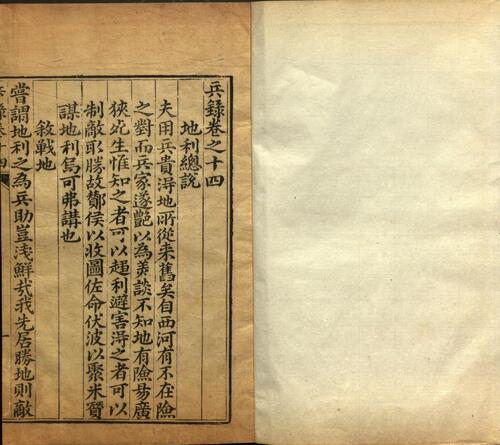 兵錄卷之十四
地利總說
夫用兵貴得地所從来舊矣自西河有不在險
之對而兵家遂艷以為美談不知地有險易廣
狹死生惟知之者可以趨利避害得之者可以
制敵取勝故酇侯以收圖佐命伏波以聚米贊
謀地利烏可弗講也
敘戰地
嘗謂地利之為兵助豈淺鮮哉我先居勝地則敵
兵錄卷十四